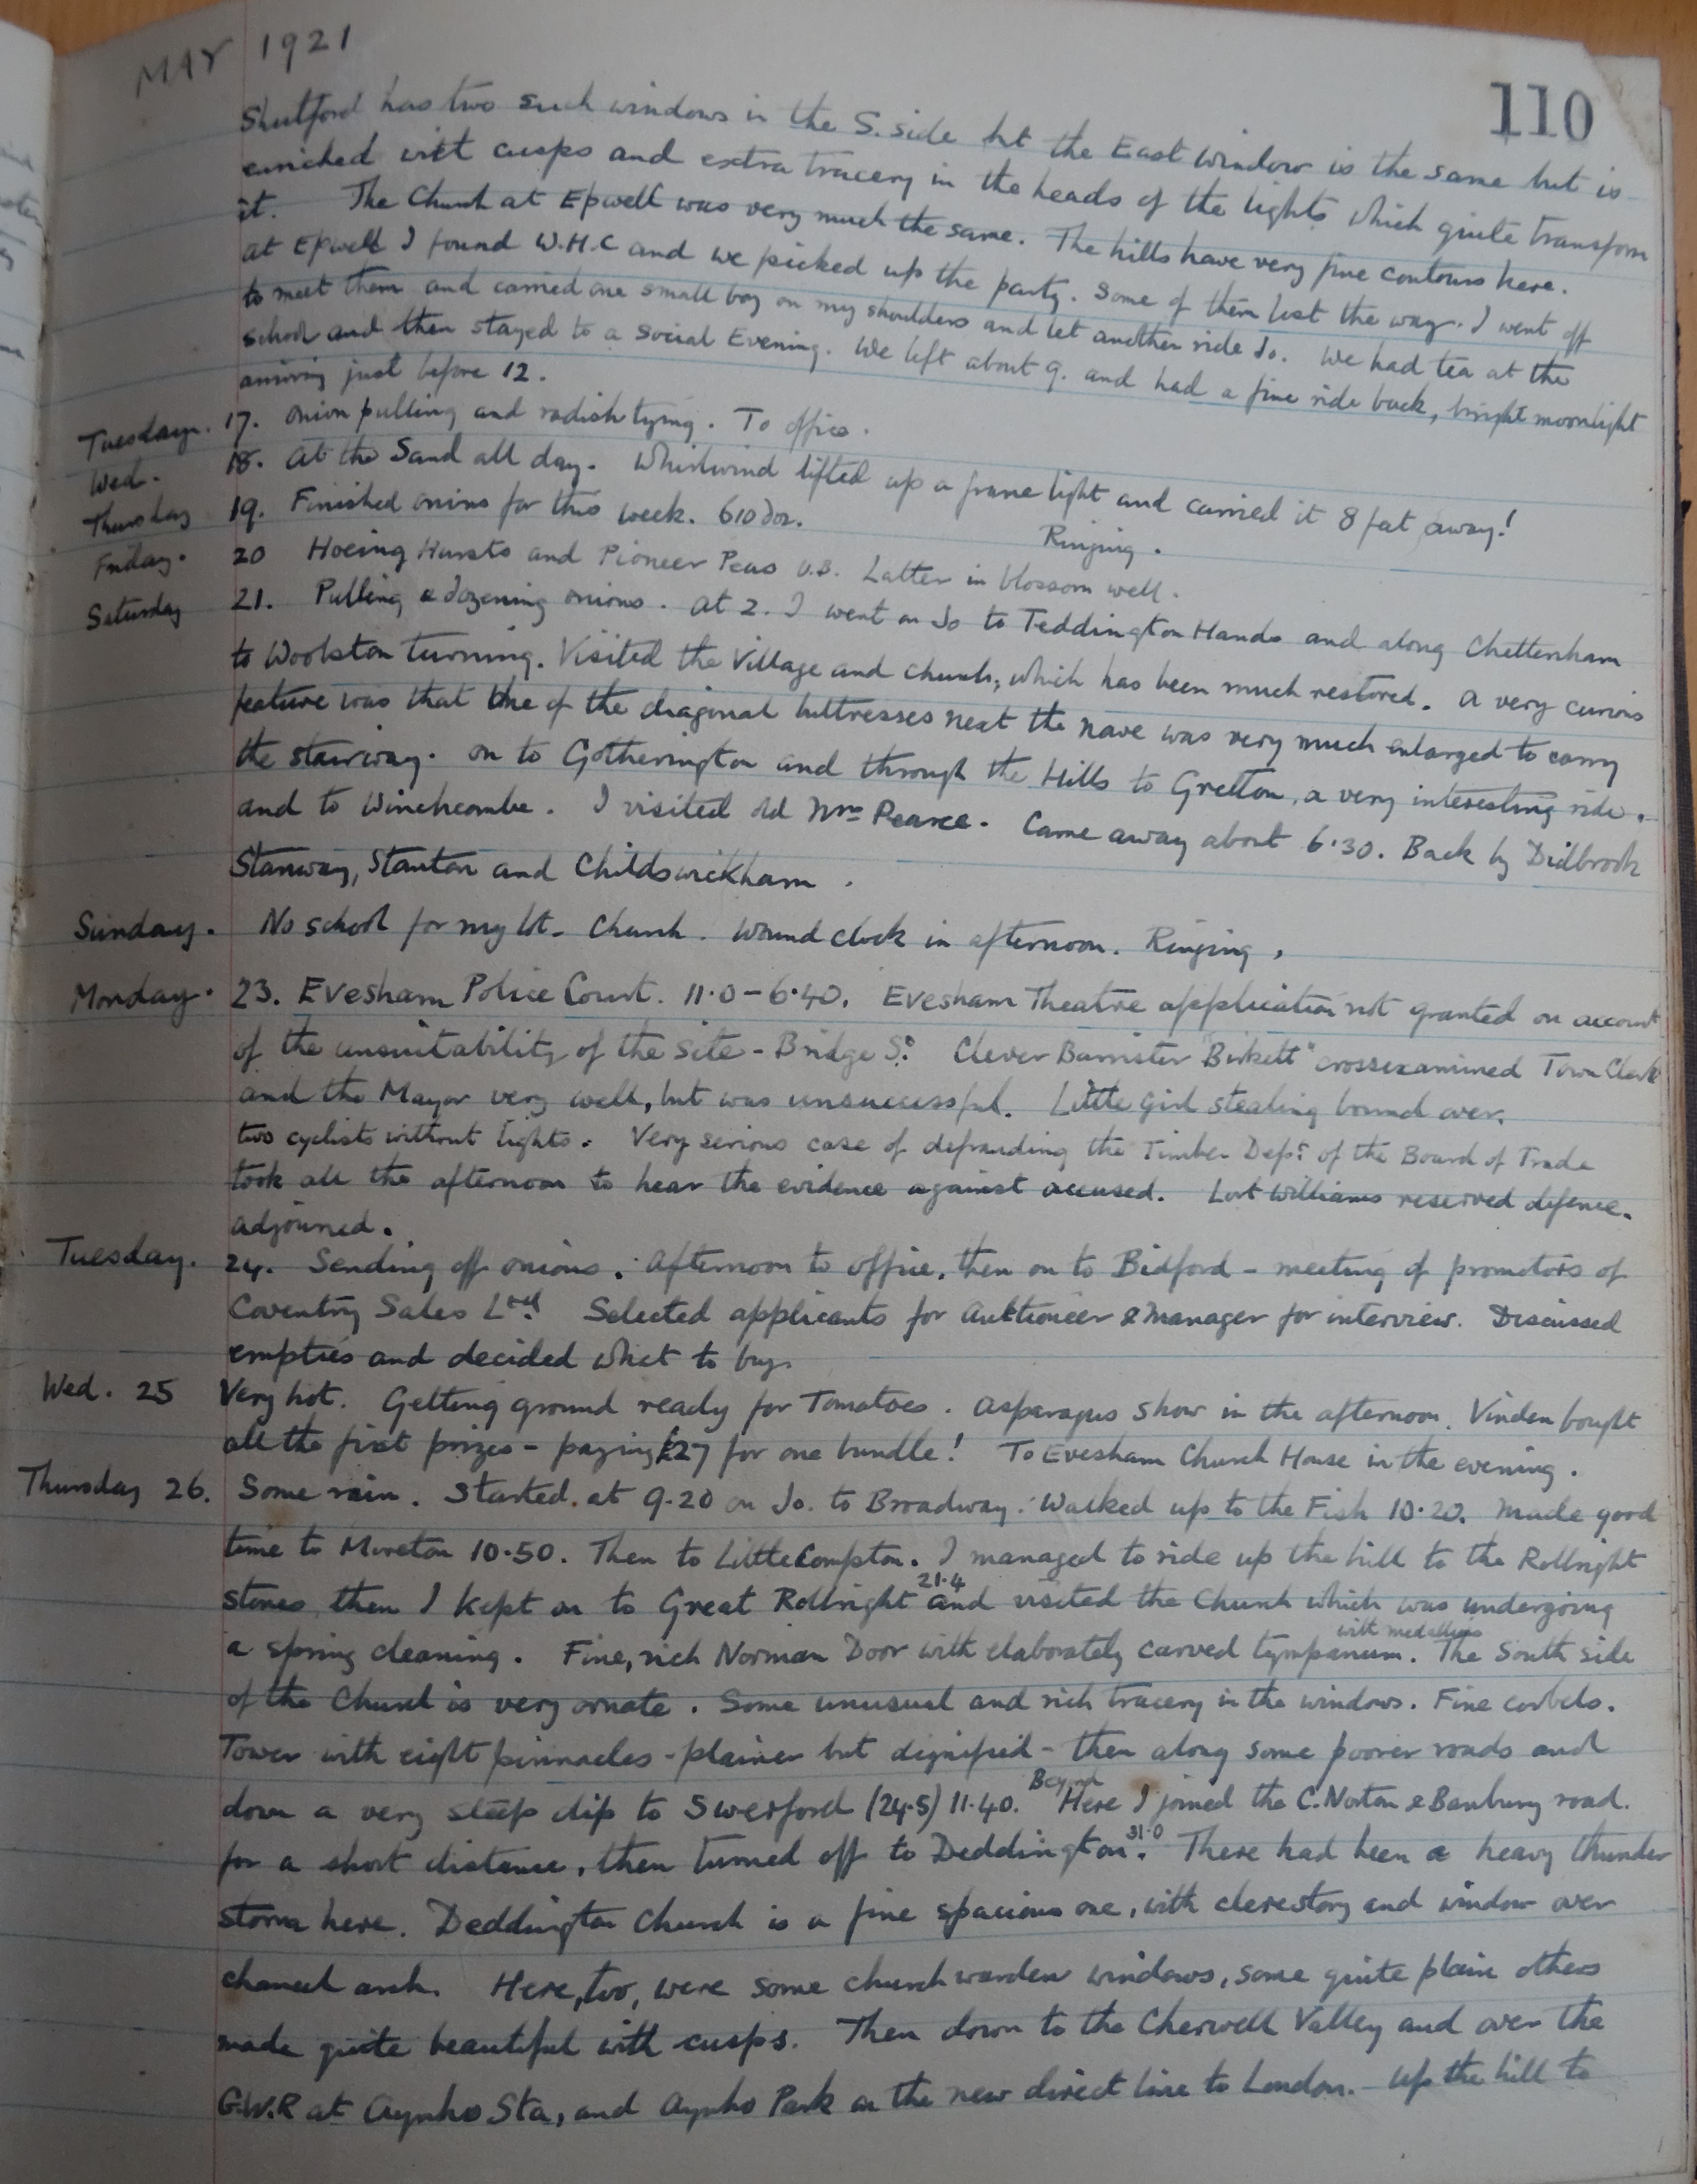 MAY 1921
110
Shutford has two such windows in the S. side but the East window is the same but is
enriched with cusps and extra tracery in the heads of the lights which quite transform
it. The Church at Epwell was very much the same. The hills have very fine contours here.
at Epwell I found W.H.C and we picked up the party. Some of them lost the way. I went off
to meet them and carried one small boy on my shoulders and let another ride Jo. We had tea at the
school and then stayed to a Social Evening. We left about 9. and had a fine ride back, bright moonlight
arriving just before 12.
Tuesday. 17. Onion pulling and radish tying. To office.
Wed. 18. At the Sand all day. Whirlwind lifted up a frame light and carried it 8 feet away!
Thursday 19. Finished onions for this week. 610 doz. Ringing.
Friday. 20 Hoeing Hursts and Pioneer Peas U.B. Latter in blossom well.
Saturday 21. Pulling & dozening onions. At 2. I went on Jo to Teddington Hands and along Cheltenham
to Woolston turning. Visited the Village and church, which has been much restored. A very curious
feature was that one of the diagonal buttresses next the nave was very much enlarged to carry
the stairway. on to Gotherington and through the Hills to Gretton, a very interesting ride.
and to Winchcombe. I visited old Mrs Pearce. Came away about 6.30. Back by Didbrook
Stanway, Stanton and Childswickham.
Sunday. No school for my lot. Church. Wound clock in afternoon. Ringing.
Monday. 23. Evesham Police Court. 11.0-6.40. Evesham Theatre application not granted on account
of the unsuitability of the site - Bridge St. Clever Barrister "Birkett" crossexamined Town Clerk
and the Mayor very well, but was unsuccessful. Little girl stealing bound over.
two cyclists without lights. Very serious case of defrauding the Timber Dept. of the Board of Trade
took all the afternoon to hear the evidence against accused. Lort Williams reserved defence.
adjourned.
Tuesday. 24. Sending off onions. Afternoon to office, then on to Bidford - meeting of promotors of
Coventry Sales Ltd. Selected applicants for Auctioneer & Manager for interview. Discussed
empties and decided what to buy.
Wed. 25 Very hot. Getting ground ready for Tomatoes. Asparagus show in the afternoon. Vinden bought
all the first prizes - paying £27 for one bundle! To Evesham Church House in the evening.
Thursday 26. Some rain. Started at 9.20 on Jo. to Broadway. Walked up to the Fish 10.20. Made good
time to Moreton 10.50. Then to Little Compton. I managed to ride up the hill to the Rollright
stones, then I kept on to Great Rollright 21.4 and visited the Church which was undergoing
a spring cleaning. Fine, rich Norman Door with elaborately carved tympanum with medallions. The South side
of the Church is very ornate. Some unusual and rich tracery in the windows. Fine corbels.
Tower with eight pinnacles - plainer but dignified - then along some poorer roads and
down a very steep dip to Swerford (24.5) 11.40. Beyond Here I joined the C. Norton & Banbury road.
for a short distance, then turned off to Deddington 31.0. There had been a heavy thunder
storm here. Deddington Church is a fine spacious one, with clerestory and window over
chancel arch. Here, too, were some churchwarden windows, some quite plain others
made quite beautiful with cusps. Then down to the Cherwell Valley and over the
G.W.R at Aynho Sta, and Aynho Park on the new direct line to London. - Up the hill to